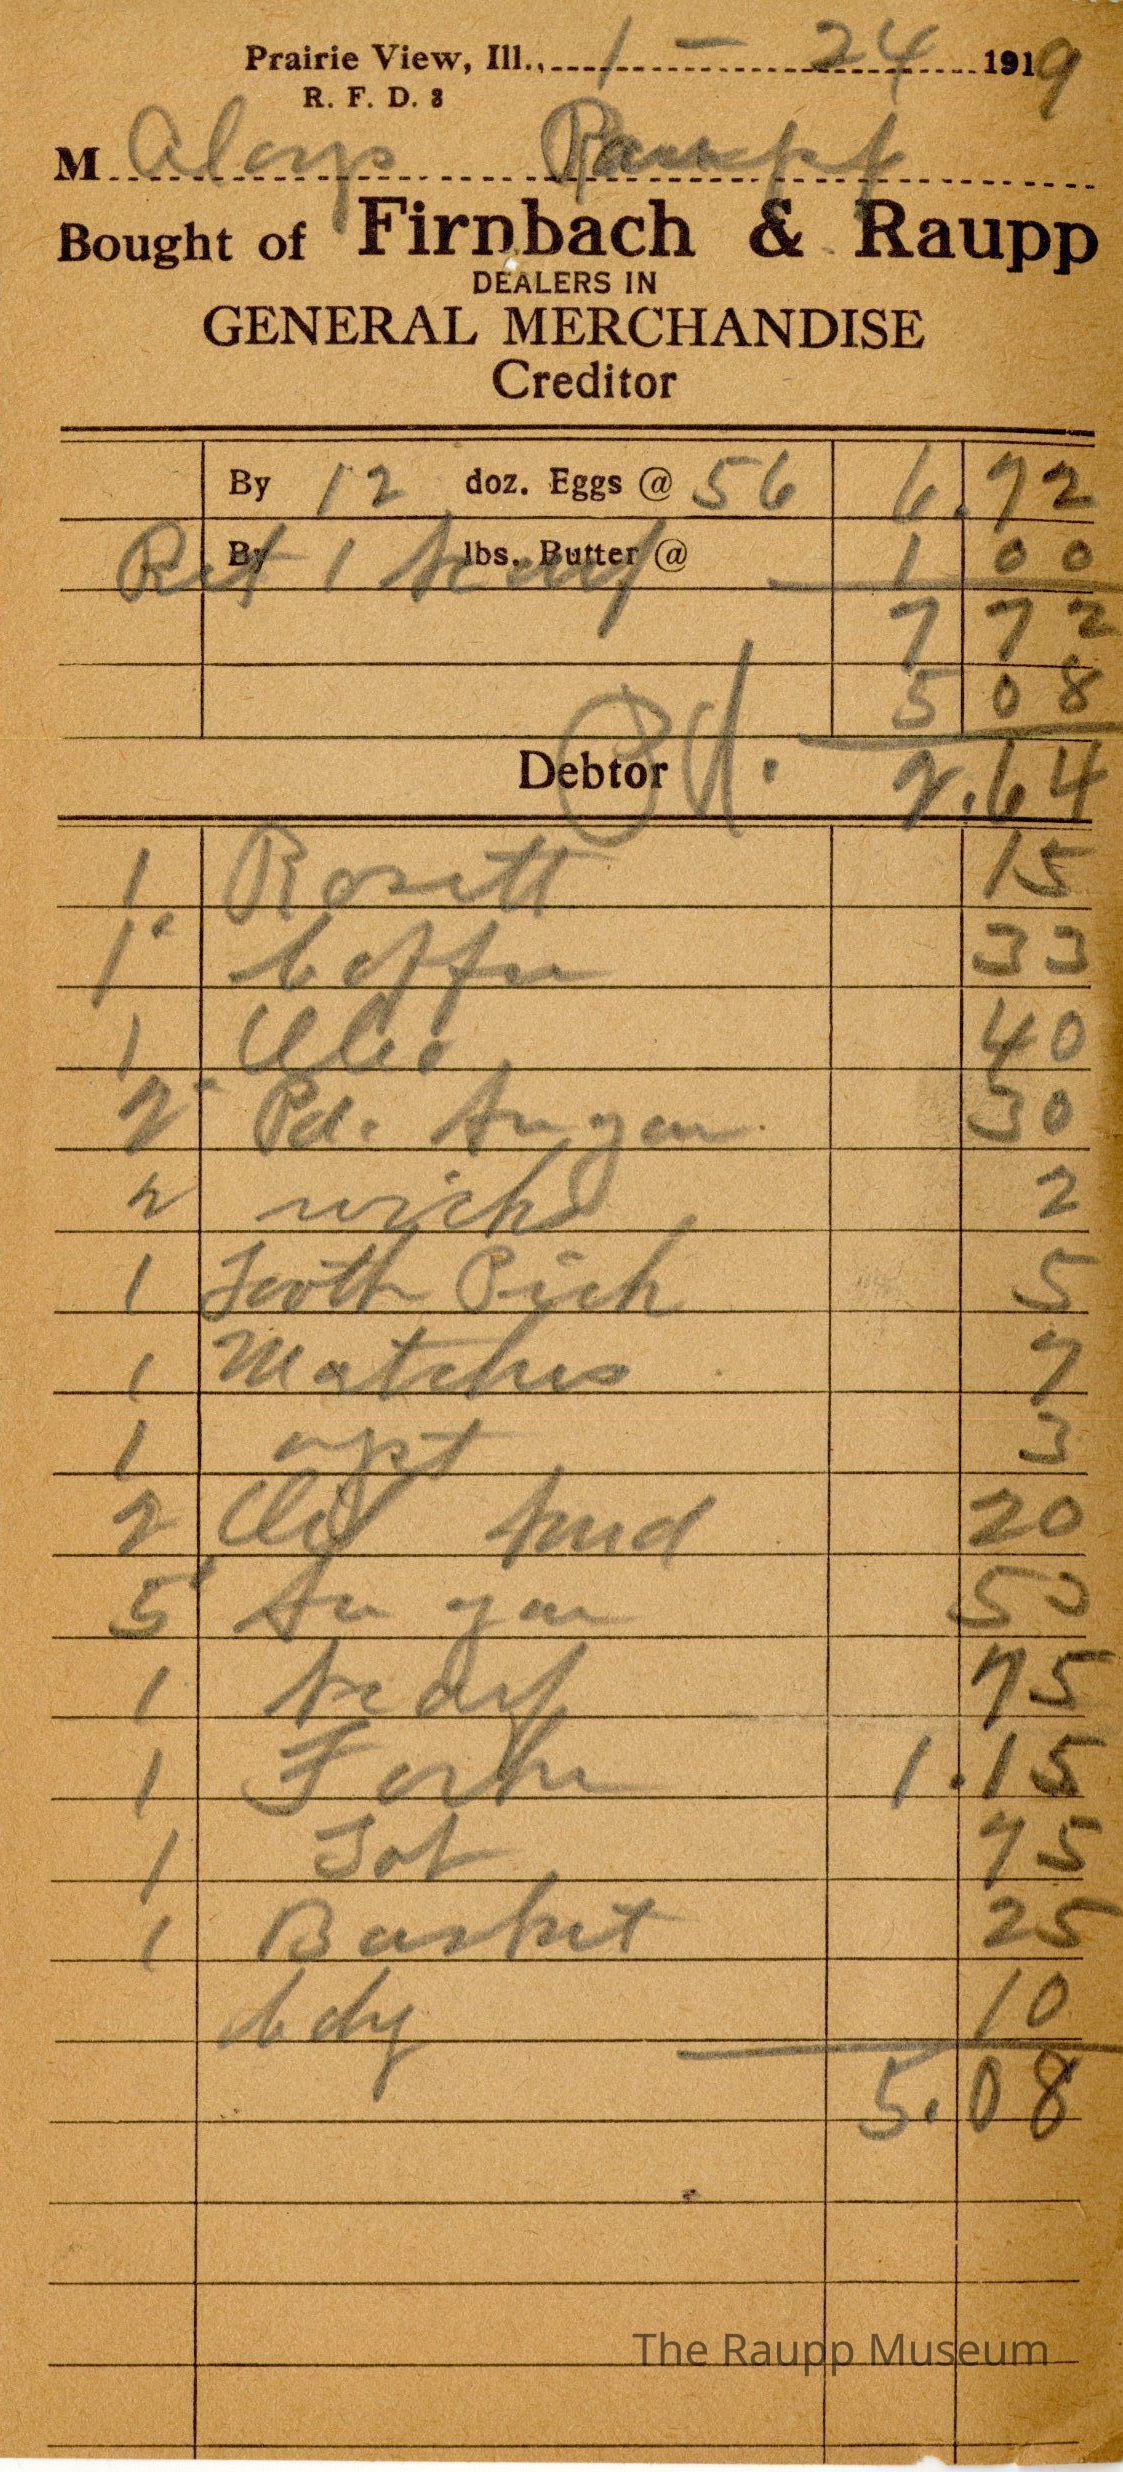 Prairie View, Ill., 1 - 24 1919
R. F. D. 3
M Aloys Raupp
Bought of Firnbach & Raupp
DEALERS IN
GENERAL MERCHANDISE
Creditor
By 12 doz. Eggs @ 56 6.72
Ret 1 Scarf By lbs. Butter @ 1 00
7 72
5 08
Debtor 2.64
1 Rosett 15
1 Coffee 33
1 Oleo 40
2 Pd. Sugar 30
2 wicks 2
1 Tooth Pick 5
1 Matches 7
1 3
2 20
5 Sugar 50
1 Scarf 75
1 Fork 1.15
1 75
1 Basket 25
Cdy 10
5.08
The Raupp Museum